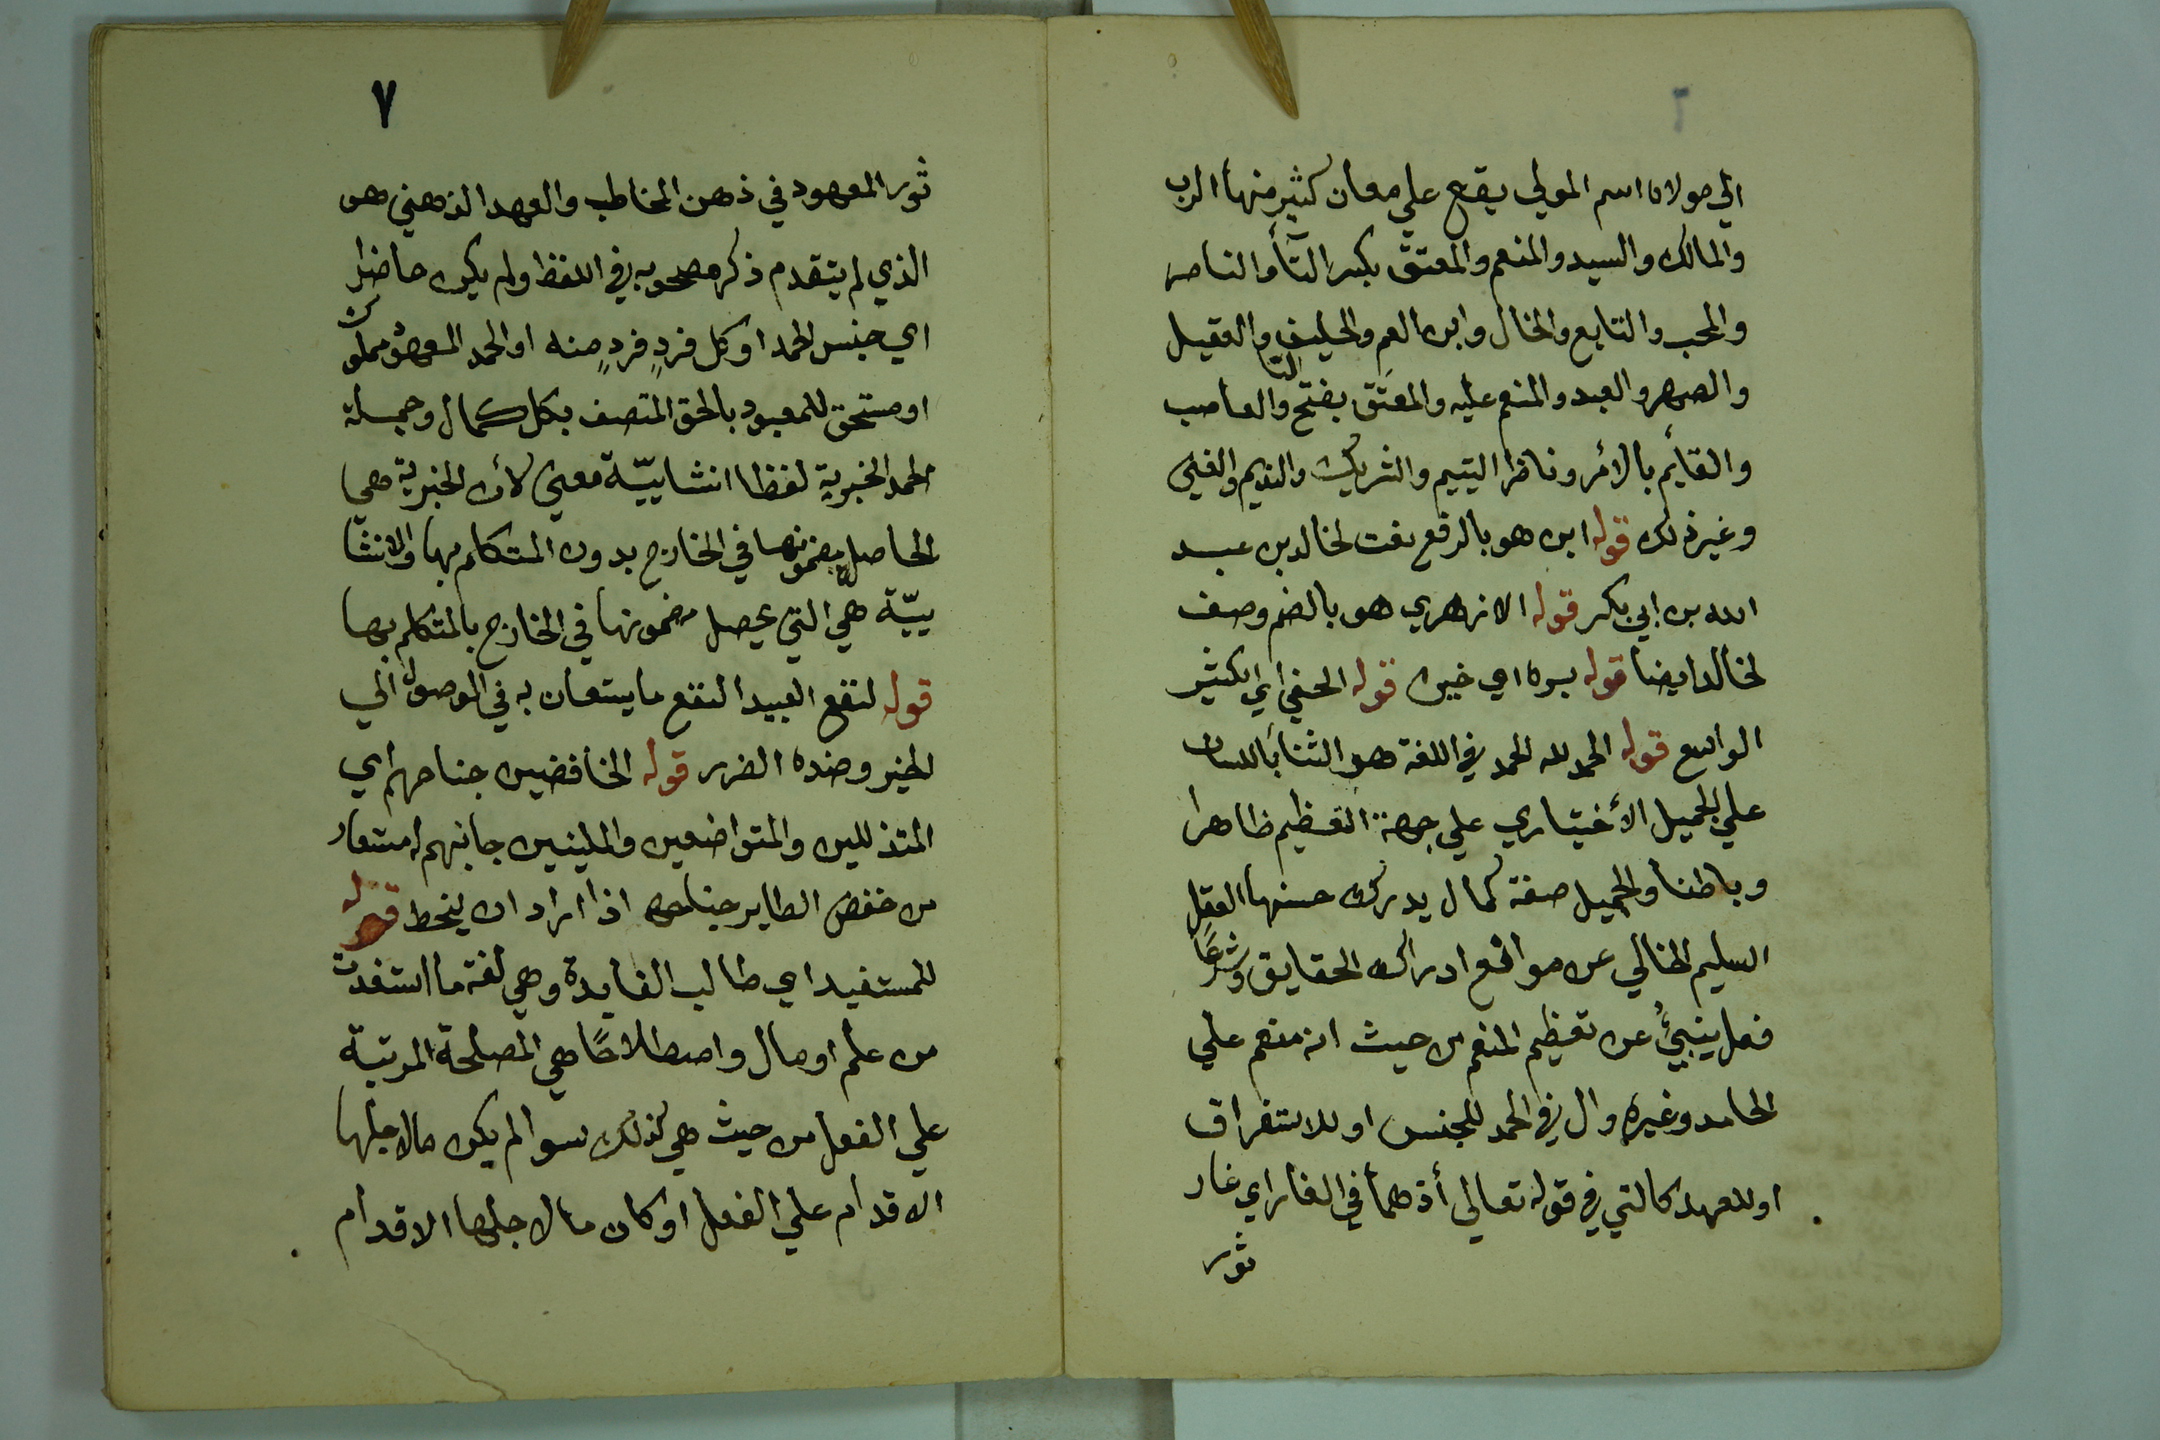 ٦
الي مولاه اسم المولي يقع علي معان كثير منها الرب
والمالك والسيد والمنعم والمعتق بكسر التأ والناصر
والمحب والتابع والخال وابن العم والحليف والعقيل
والصهر والعبد والمنعم عليه والمعتَق بفتح التا والعاصب
والقأيم بالأمر وناظر اليتيم والشريك والنديم والغني
وغير ذلك قوله ابن هو بالرفع نعت لخالد بن عبد
الله بن ابي بكر قوله الازهري هو بالضم وصف
لخالد ايضا قوله بره اي خيره قوله الحفي اي الكثير
الواسع قوله الحمد لله الحمد في اللغة هو الثنا باللسان
علي الجميل الأختياري علي جهة التعظيم ظاهرا
وباطنا والجميل صفة كمال يدرك حسنها العقل
السليم الخالي عن موانع ادراك الحقايق وشرعًا
فعل ينبئُ عن تعظيم المنعم من حيث انه منعم علي
الحامد وغيره وال في الحمد للجنس او للاستغراق
او للعهد كالتي في قوله تعالي أذ هما في الغار اي غار
ثور
٧
ثور المعهود في ذهن المخاطب والعهد الذهني هو
الذي لم يتقدم ذكر مصحوبه في اللفظ ولم يكن حاضرا
اي جنس الحمد او كل فردٍ فردٍ منه او الحمد المعهود مملوك
او مستحق للمعبود بالحق المتصف بكل كمال وجملة
الحمد الخبرية لفظا انشاييّة معني لأن الخبرية هي
الحاصل مضمونها في الخارج بدون المتكلم بها والانشا
ييّة هي التي يحصل مضمونها في الخارج بالمتكلم بها
قوله لنفع العبيد النفع ما يستعان به في الوصول الي
الخير وضده الضرر قوله الخافضين جناحهم اي
المتذللين والمتواضعين والملينين جانبهم له مستعار
من خفض الطاير جناحه اذا اراد ان ينحط قوله
للمستفيد اي طالب الفايدة وهي لغة ما استفدت
من علم او مال واصطلاحًا هي المصلحة المرتبة
علي الفعل من حيث هي كذلك سوا لم يكن مالاجلها
الاقدام علي الفعل او كان مالاجلها الاقدام